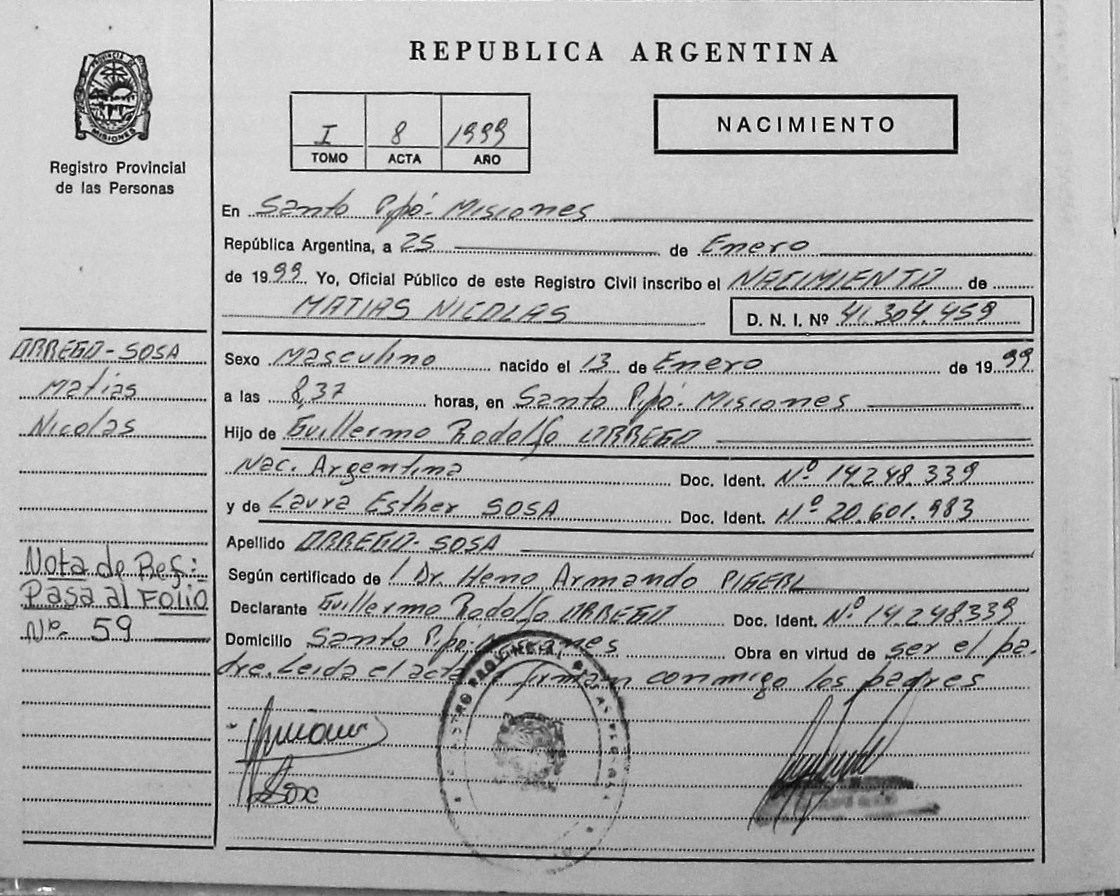 REPUBLICA ARGENTINA
PROVINCIA DE
MISIONES
Registro Provincial
de las Personas
I 8 1999
TOMO ACTA AÑO
NACIMIENTO
En Santo Pipó - Misiones
República Argentina, a 25 de Enero
de 1999 Yo, Oficial Público de este Registro Civil inscribo el NACIMIENTO de
MATIAS NICOLAS D. N. I. Nº 41.304.459
ORREGO-SOSA
Matias
Nicolas
Sexo Masculino nacido el 13 de Enero de 1999
a las 8,37 horas, en Santo Pipó - Misiones
Hijo de Guillermo Rodolfo ORREGO
Nac. Argentina Doc. Ident. Nº 14.248.339
y de Laura Esther SOSA Doc. Ident. Nº 20.601.983
Apellido ORREGO-SOSA
Según certificado de Dr. Armando
Declarante Guillermo Rodolfo ORREGO Doc. Ident. Nº 14.248.339
Domicilio Santo Pipó - Misiones Obra en virtud de ser el pa-
dre. Leida el acta firman conmigo los padres
Nota de Ref:
Pasa al FOLIO
Nº 59